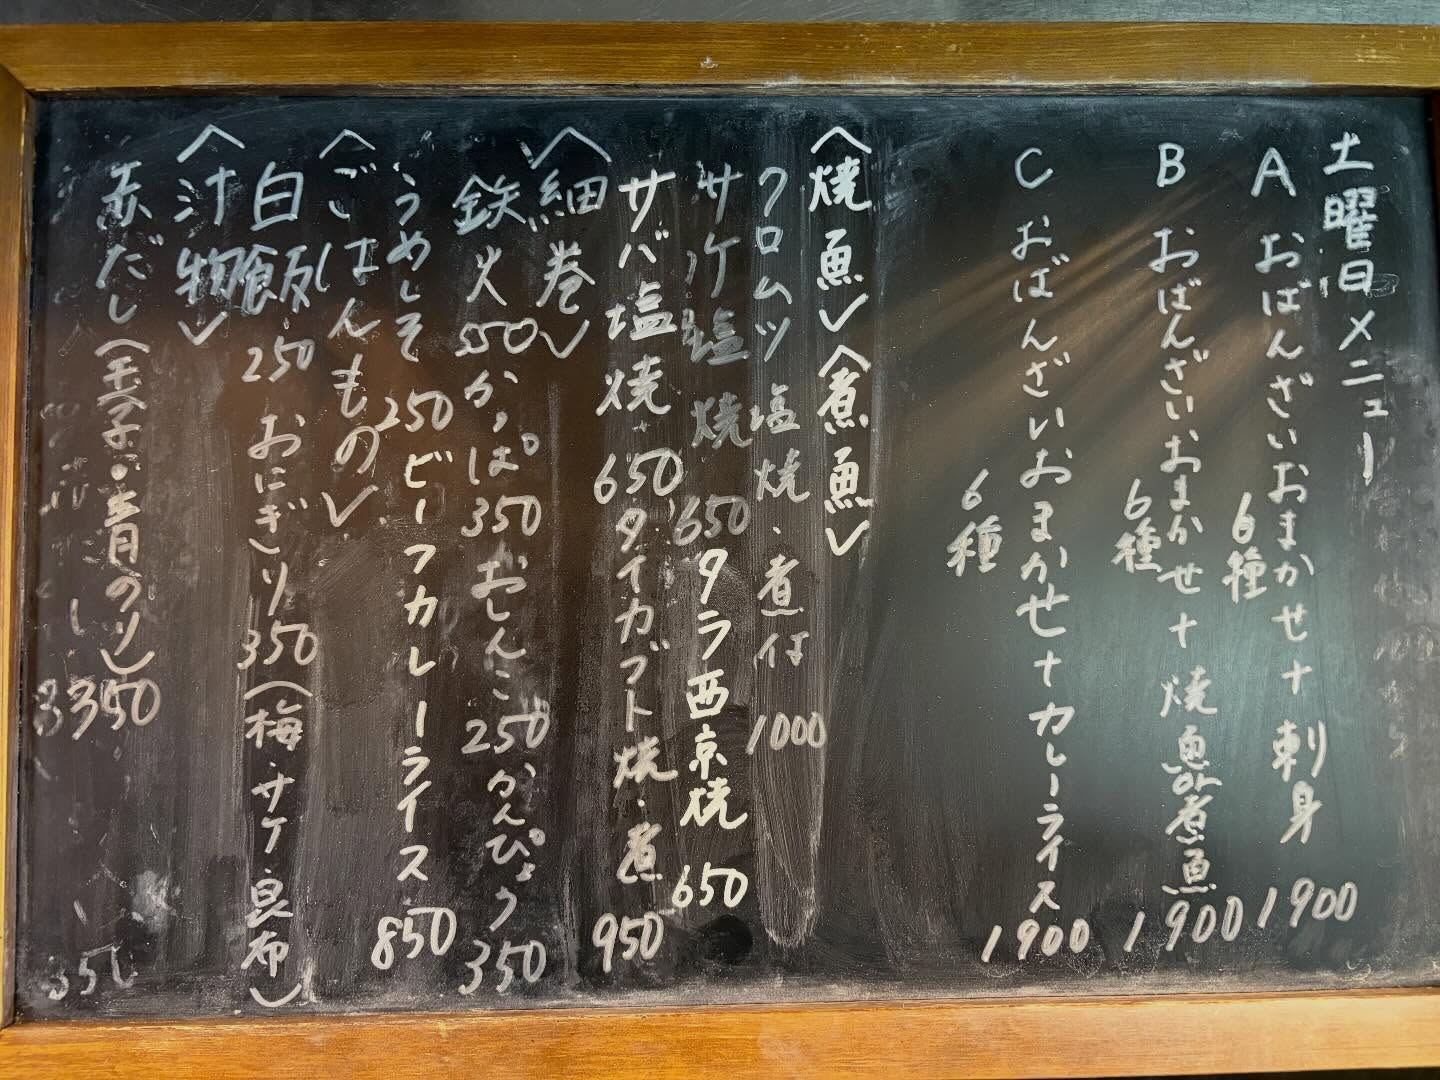 土曜日メニュー
A おばんざいおまかせ+刺身 1900
6種
B おばんざいおまかせ+焼魚or煮魚 1900
6種
C おばんざいおまかせ+カレーライス 1900
6種
〈焼魚〉〈煮魚〉
クロムツ 塩焼・煮付 1000
サケ塩焼 650 タラ西京焼 650
サバ塩焼 650 タイカブト焼・煮 950
〈細巻〉
鉄火 550 かっぱ 350 おしんこ 250 かんぴょう 350
うめしそ 250 ビーフカレーライス 850
〈ごはんもの〉
白飯 250 おにぎり 350 (梅・サケ・昆布)
〈汁物〉
赤だし(玉子・青のり) 350